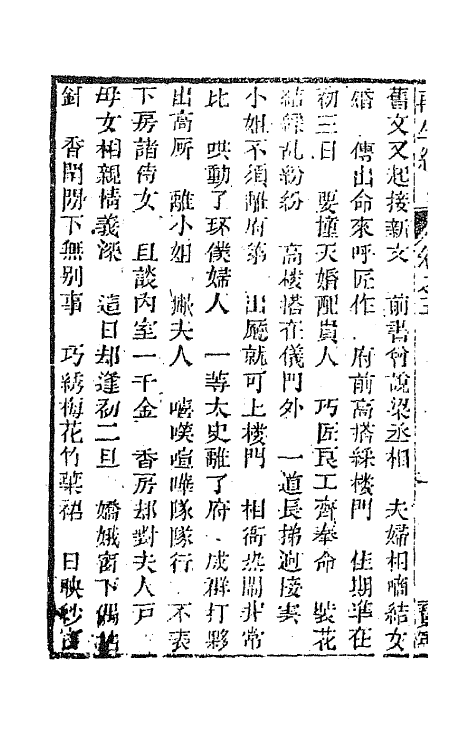 再生緣 卷之五
舊文又起接新文　前書曾說梁丞相　夫婦相商結女
婚　傳出命來呼匠作　府前高搭綵樓門　佳期準在
初三日　要撞天婚配貴人　巧匠良工齊奉命　裝花
結綵乱紛紛　高樓搭在儀門外　一道長梯逈接雲
小姐不須離府第　出廳就可上楼門　相府熱閙非常
比　哄動了环僕婦人　一等太史離了府　成群打夥
出高厨　離小姐　撇夫人　嘻嘆喧嘩隊隊行　不表
下房諸侍女　且談內室一千金　香房却對夫人戸
母女相親情義深　這日却逢初二旦　嬌娥窗下偶拈
針　香閨閑下無别事　巧綉梅花竹葉裙　日映紗窗